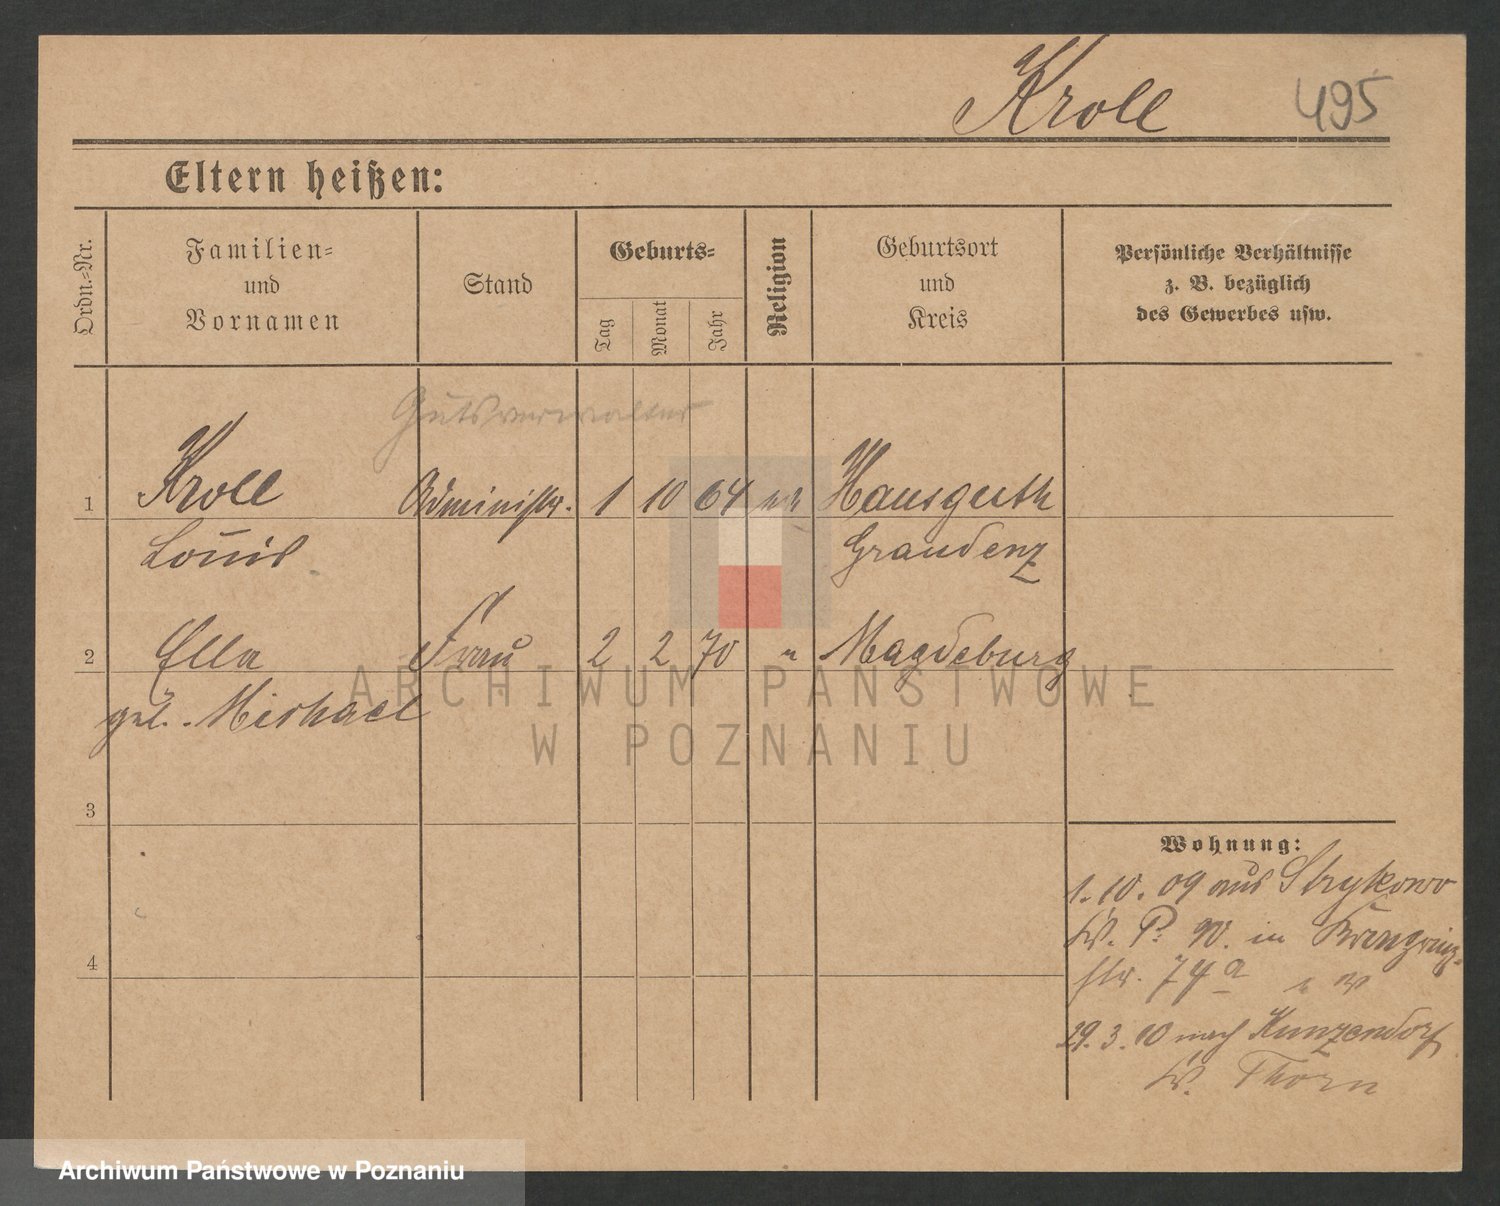 Kroll 495
Eltern heißen:
Ordn.-Nr.
Familien-
und
Vornamen
Stand
Geburts-
Tag
Monat
Jahr
Religion
Geburtsort
und
Kreis
Persönliche Verhältnisse
z. B. bezüglich
des Gewerbes usw.
Gutsverwalter
1 Kroll Administr. 1 10 64 Hansguth
Louis Graudenz
2 Ella Frau 2 2 70 " Magdeburg
geb. Michael
3
4
Wohnung:
1.10.09 aus Strykowo
Kr. P. W. in Kronprinz-
str. 74a
29.3.10 nach Kunzendorf
Kr. Thorn
ARCHIWUM PAŃSTWOWE
W POZNANIU
Archiwum Państwowe w Poznaniu